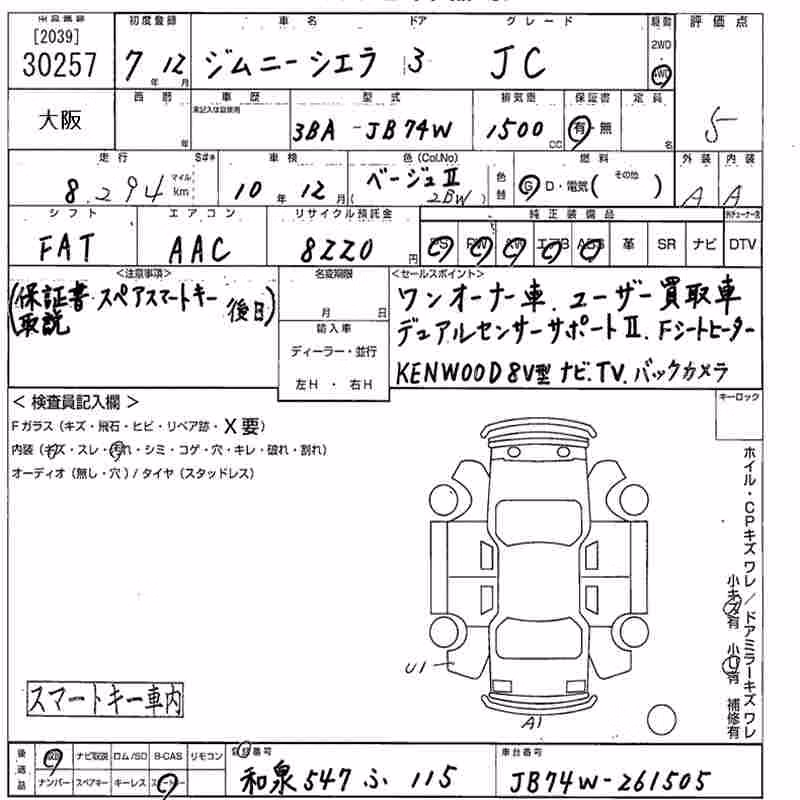 [2039]
30257
初度登録 車名 ドア グレード 駆動 評価点
7年 12月 ジムニーシエラ 3 JC 2WD 4WD
大阪
西暦 車歴 型式 排気量 保証書 定員
年 未記入は自家使用 3BA-JB74W 1500cc 有・無 名 5
走行 S#* 車検 色(Col.No) 燃料 外装 内装
8,294 マイル km 10年 12月 ベージュⅡ (2BW) 色替 G・D・電気( その他 ) A A
シフト エアコン リサイクル預託金 純正装備品
FAT AAC 8220円 PS PW AW エアB ABS 革 SR ナビ DTV
<注意事項> 名変期限 <セールスポイント>
(保証書 スペアスマートキー 後日)
取説
月 日
輸入車
ディーラー・並行
左H ・ 右H
ワンオーナー車.ユーザー買取車
デュアルセンサーサポートⅡ.Fシートヒーター
KENWOOD 8V型 ナビ.TV.バックカメラ
<検査員記入欄> キーロック
Fガラス(キズ・飛石・ヒビ・リペア跡・X要)
内装(キズ・スレ・汚れ・シミ・コゲ・穴・キレ・破れ・割れ)
オーディオ(無し・穴)/タイヤ(スタッドレス)
ホイル・CPキズ ワレ/ドアミラーキズ ワレ
小キズ有 小凹有 補修有
U1
A1
スマートキー車内
後送品 取説 ナビ取説 ロム/SD B-CAS リモコン 登録番号 車台番号
ナンバー スペアキー キーレス 和泉 547 ふ 115 JB74W-261505